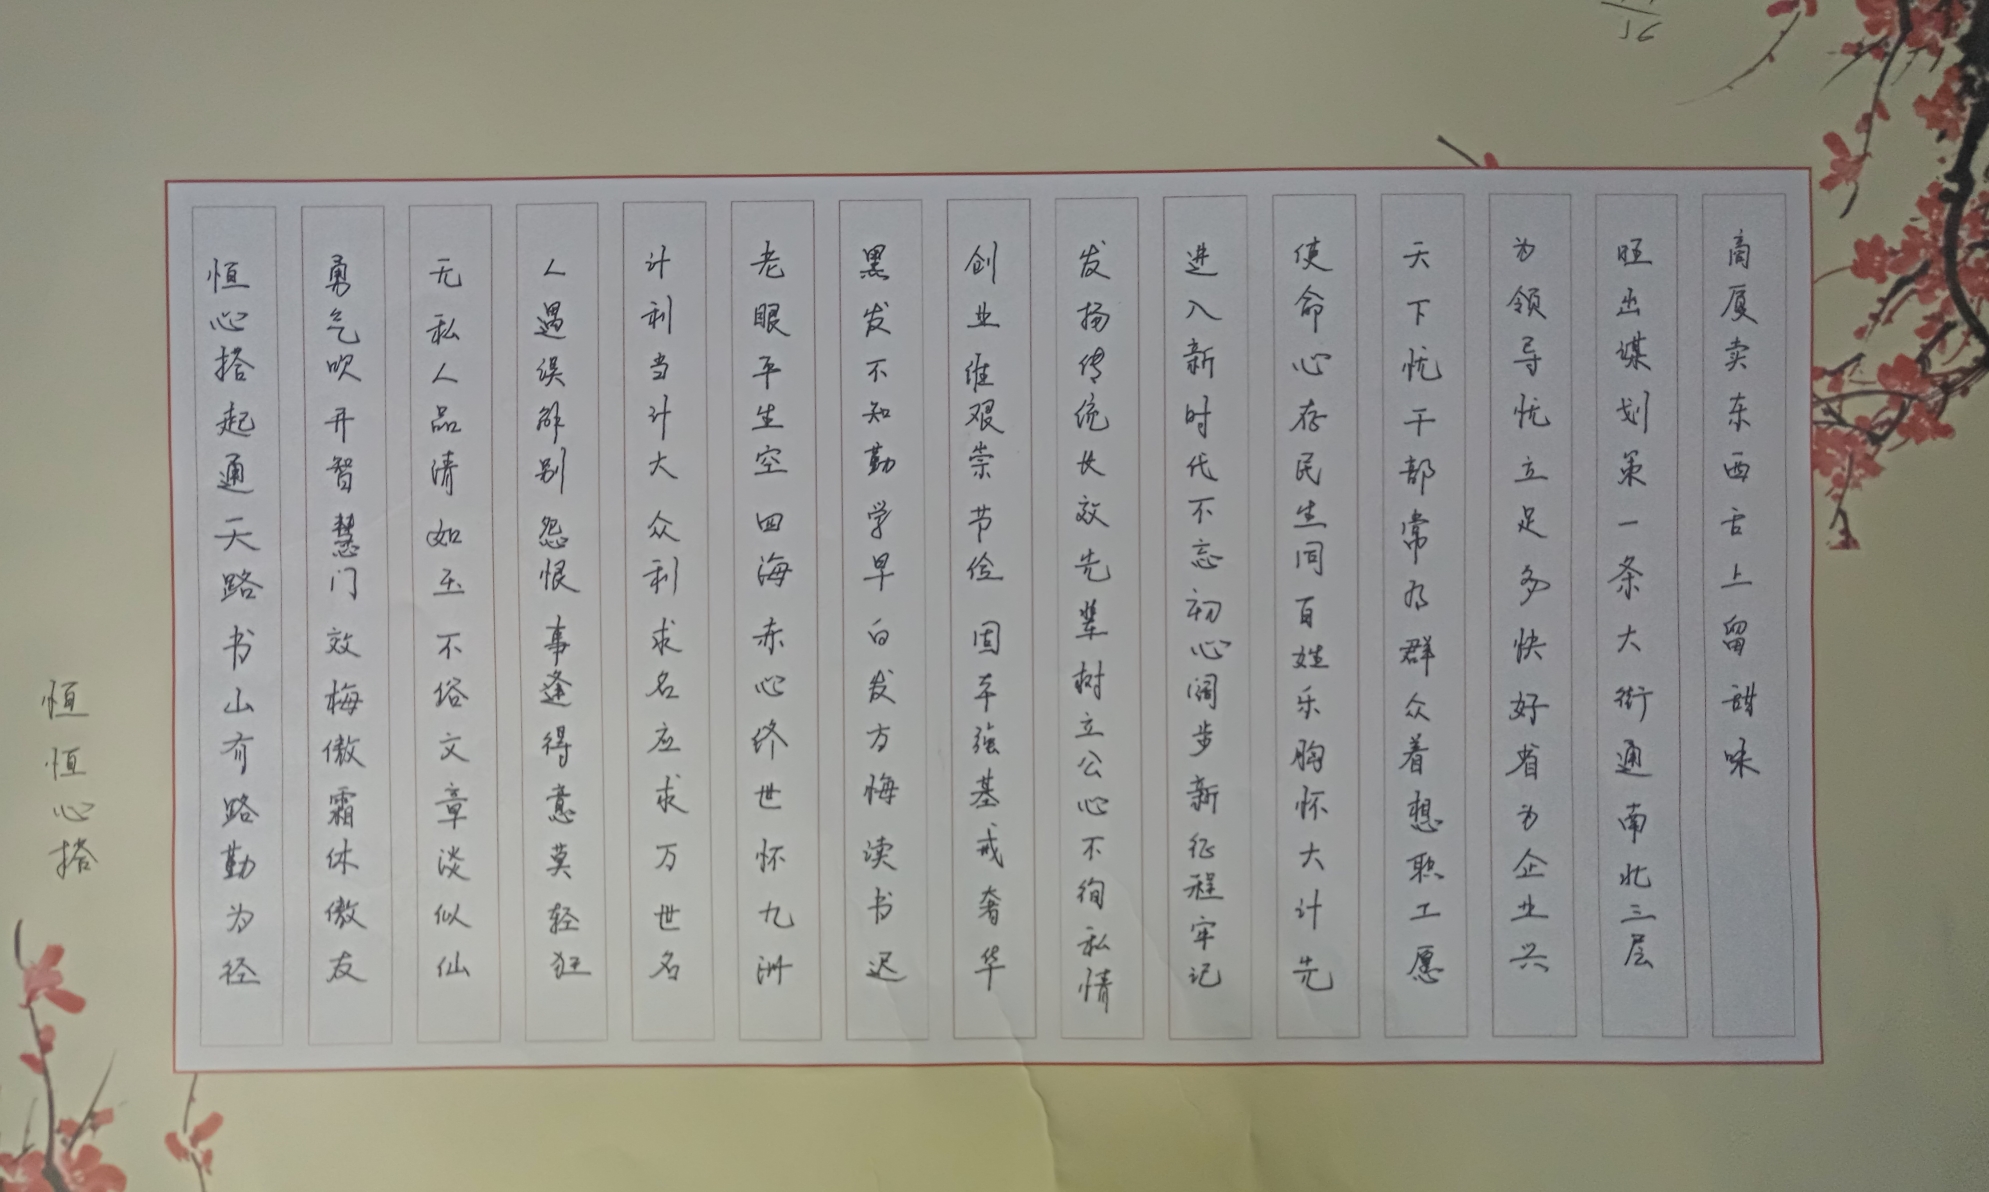 商厦卖东西舌上留甜味
旺出谋划策一条大街通南北三层
为领导忧立足多快好省为企业兴
天下忧干部常为群众着想职工愿
使命心存民生同百姓乐胸怀大计先
进入新时代不忘初心阔步新征程牢记
发扬传统长效先辈树立公心不徇私情
创业维艰崇节俭固本强基戒奢华
黑发不知勤学早白发方悔读书迟
老眼平生空四海赤心终世怀九洲
计利当计大众利求名应求万世名
人遇误解别怨恨事逢得意莫轻狂
无私人品清如玉不俗文章淡似仙
勇气吹开智慧门效梅傲霜休傲友
恒心搭起通天路书山有路勤为径
恒恒心搭